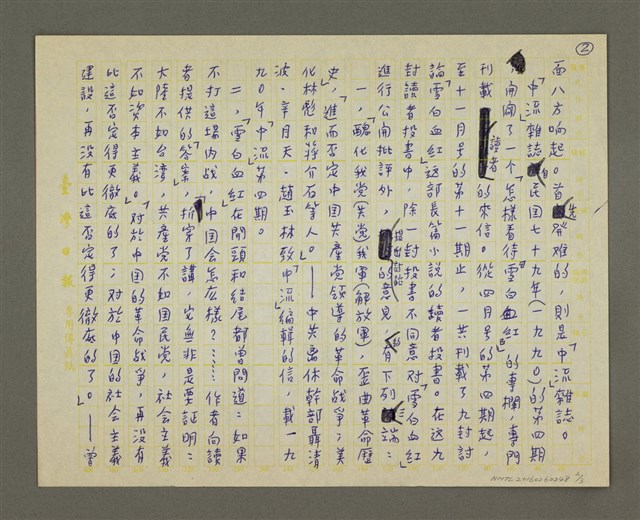 ②
面八方响起。首先發难的，則是「中流」雜誌。
「中流」雜誌自民国七十九年（一九九〇）的第四期
，開闢了一个「怎樣看待『雪白血紅』」的專欄，專門
刊載讀者的來信。從四月号的第四期起，
至十一月号的第十一期止，一共刊載了九封討
論「雪白血紅」這部長篇小説的讀者投書。在这九
封讀者投書中，除一封投書不同意对「雪白血紅」
進行公開批評外，提出討論的意見，有下列三端：
一，「醜化我党（共党）我軍（解放軍），歪曲革命歷
史，進而否定中国共產党領導的革命战爭；美
化林彪和蔣介石等人。」——中共离休幹部聶清
波、辛月天、趙玉林致「中流」編輯的信，載一九
九〇年「中流」第四期。
二，「『雪白血紅』在開頭和結尾都曾問道：如果
不打這場内战，中国会怎庅樣？……作者向讀
者提供的答案，拆穿了講，它無非是要証明：
大陸不如台湾，共產党不如国民党，社会主義
不如资本主義。」「对於中国的革命战爭，再没有
比這否定得更徹底的了；对於中国的社会主義
建設，再没有比這否定得更徹底的了。」——曾
臺灣日報
NMTL20160260248 2/3